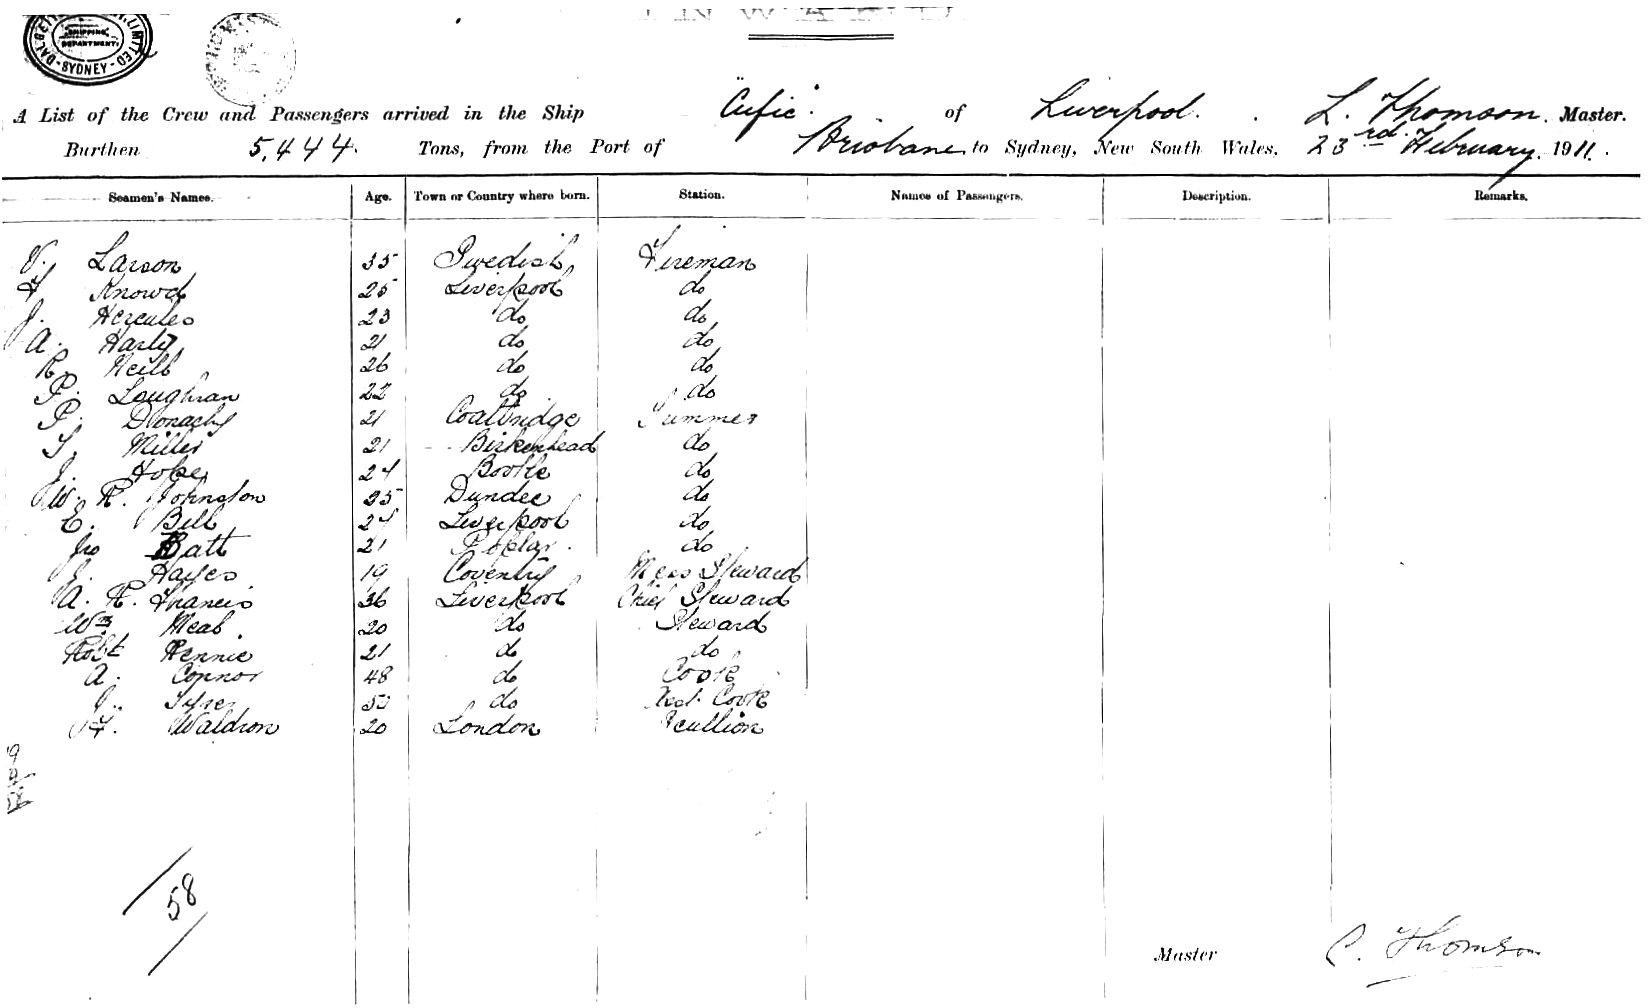 SHIPPING
DEPARTMENT
LIMITED
SYDNEY
A List of the Crew and Passengers arrived in the Ship Cufic. of Liverpool. L. Thomson. Master.
Burthen 5,444. Tons, from the Port of Brisbane to Sydney, New South Wales, 23rd. February. 1911.
Seamen's Names. Age. Town or Country where born. Station. Names of Passengers. Description. Remarks.
V. Larson 35 Swedish Fireman
Knowd 25 Liverpool do
J. Hercules 23 do do
A. Harly 21 do do
R. Neill 26 do do
P. Loughran 22 do do
P. Donachy 21 Coatbridge Trimmer
T. Miller 21 Birkenhead do
J. Hope 24 Bootle do
W. R. Johnston 25 Dundee do
E. Bell 24 Liverpool do
Jno Batt 21 Poplar. do
Hayes 19 Coventry Mess Steward
A. R. Francis 36 Liverpool Chief Steward
Wm Meal 20 do Steward
Robt Rennie 21 do do
A. Connor 48 do Cook
J. Tyrer 50 do Asst. Cook
H. Waldron 20 London Scullion
58
Master C. Thomson